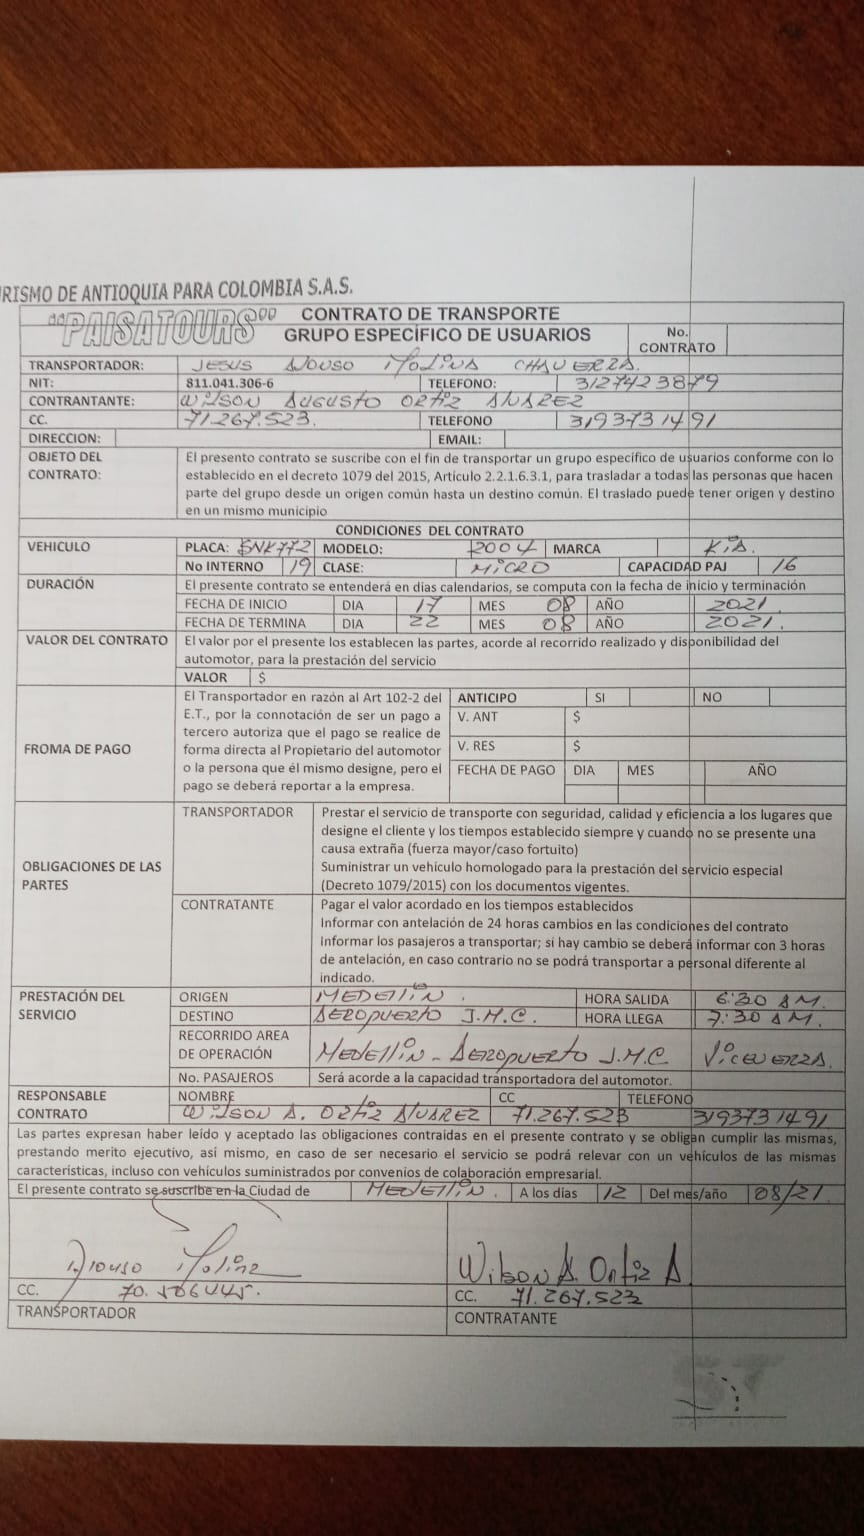 RISMO DE ANTIOQUIA PARA COLOMBIA S.A.S.
"PAISATOURS" CONTRATO DE TRANSPORTE
GRUPO ESPECÍFICO DE USUARIOS No. CONTRATO
TRANSPORTADOR: JESUS ALONSO MOLINA CHAVERRA.
NIT: 811.041.306-6 TELEFONO: 3127423879
CONTRANTANTE: WILSON AUGUSTO ORTIZ ALVAREZ
CC. 71.267.523. TELEFONO 3193731491
DIRECCION: EMAIL:
OBJETO DEL CONTRATO: El presento contrato se suscribe con el fin de transportar un grupo específico de usuarios conforme con lo
establecido en el decreto 1079 del 2015, Artículo 2.2.1.6.3.1, para trasladar a todas las personas que hacen
parte del grupo desde un origen común hasta un destino común. El traslado puede tener origen y destino
en un mismo municipio
CONDICIONES DEL CONTRATO
VEHICULO PLACA: SNK772 MODELO: 2004 MARCA KIA.
No INTERNO 19 CLASE: MICRO CAPACIDAD PAJ 16
DURACIÓN El presente contrato se entenderá en días calendarios, se computa con la fecha de inicio y terminación
FECHA DE INICIO DIA 17 MES 08 AÑO 2021
FECHA DE TERMINA DIA 22 MES 08 AÑO 2021.
VALOR DEL CONTRATO El valor por el presente los establecen las partes, acorde al recorrido realizado y disponibilidad del
automotor, para la prestación del servicio
VALOR $
FROMA DE PAGO
El Transportador en razón al Art 102-2 del
E.T., por la connotación de ser un pago a
tercero autoriza que el pago se realice de
forma directa al Propietario del automotor
o la persona que él mismo designe, pero el
pago se deberá reportar a la empresa.
ANTICIPO SI NO
V. ANT $
V. RES $
FECHA DE PAGO DIA MES AÑO
OBLIGACIONES DE LAS PARTES
TRANSPORTADOR Prestar el servicio de transporte con seguridad, calidad y eficiencia a los lugares que
designe el cliente y los tiempos establecido siempre y cuando no se presente una
causa extraña (fuerza mayor/caso fortuito)
Suministrar un vehículo homologado para la prestación del servicio especial
(Decreto 1079/2015) con los documentos vigentes.
CONTRATANTE Pagar el valor acordado en los tiempos establecidos
Informar con antelación de 24 horas cambios en las condiciones del contrato
Informar los pasajeros a transportar; si hay cambio se deberá informar con 3 horas
de antelación, en caso contrario no se podrá transportar a personal diferente al
indicado.
PRESTACIÓN DEL SERVICIO ORIGEN MEDELLIN. HORA SALIDA 6:30 AM.
DESTINO AEROPUERTO J.M.C. HORA LLEGA 7:30 AM.
RECORRIDO AREA DE OPERACIÓN MEDELLIN - AEROPUERTO J.M.C VICEVERZA.
No. PASAJEROS Será acorde a la capacidad transportadora del automotor.
RESPONSABLE CONTRATO NOMBRE CC TELEFONO
WILSON A. ORTIZ ALVAREZ 71.267.523 3193731491
Las partes expresan haber leído y aceptado las obligaciones contraídas en el presente contrato y se obligan cumplir las mismas,
prestando merito ejecutivo, así mismo, en caso de ser necesario el servicio se podrá relevar con un vehículos de las mismas
características, incluso con vehículos suministrados por convenios de colaboración empresarial.
El presente contrato se suscribe en la Ciudad de MEDELLIN. A los días 12 Del mes/año 08/21.
Alonso Molina Wilson A. Ortiz A.
CC. 70. CC. 71.267.523
TRANSPORTADOR CONTRATANTE